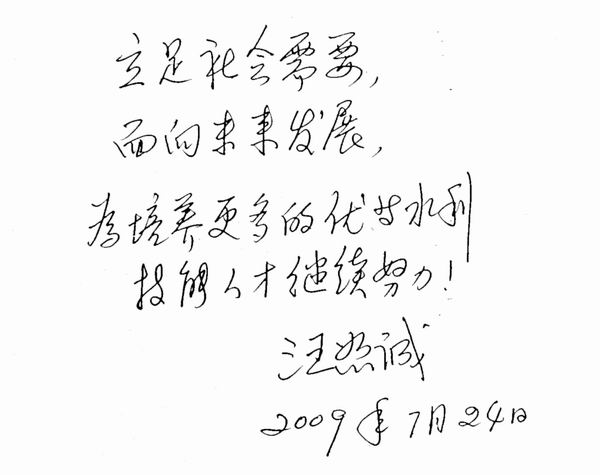 立足社会需要,
面向未来发展,
为培养更多的优秀水利
技能人才继续努力!
汪恕诚
2009年7月24日